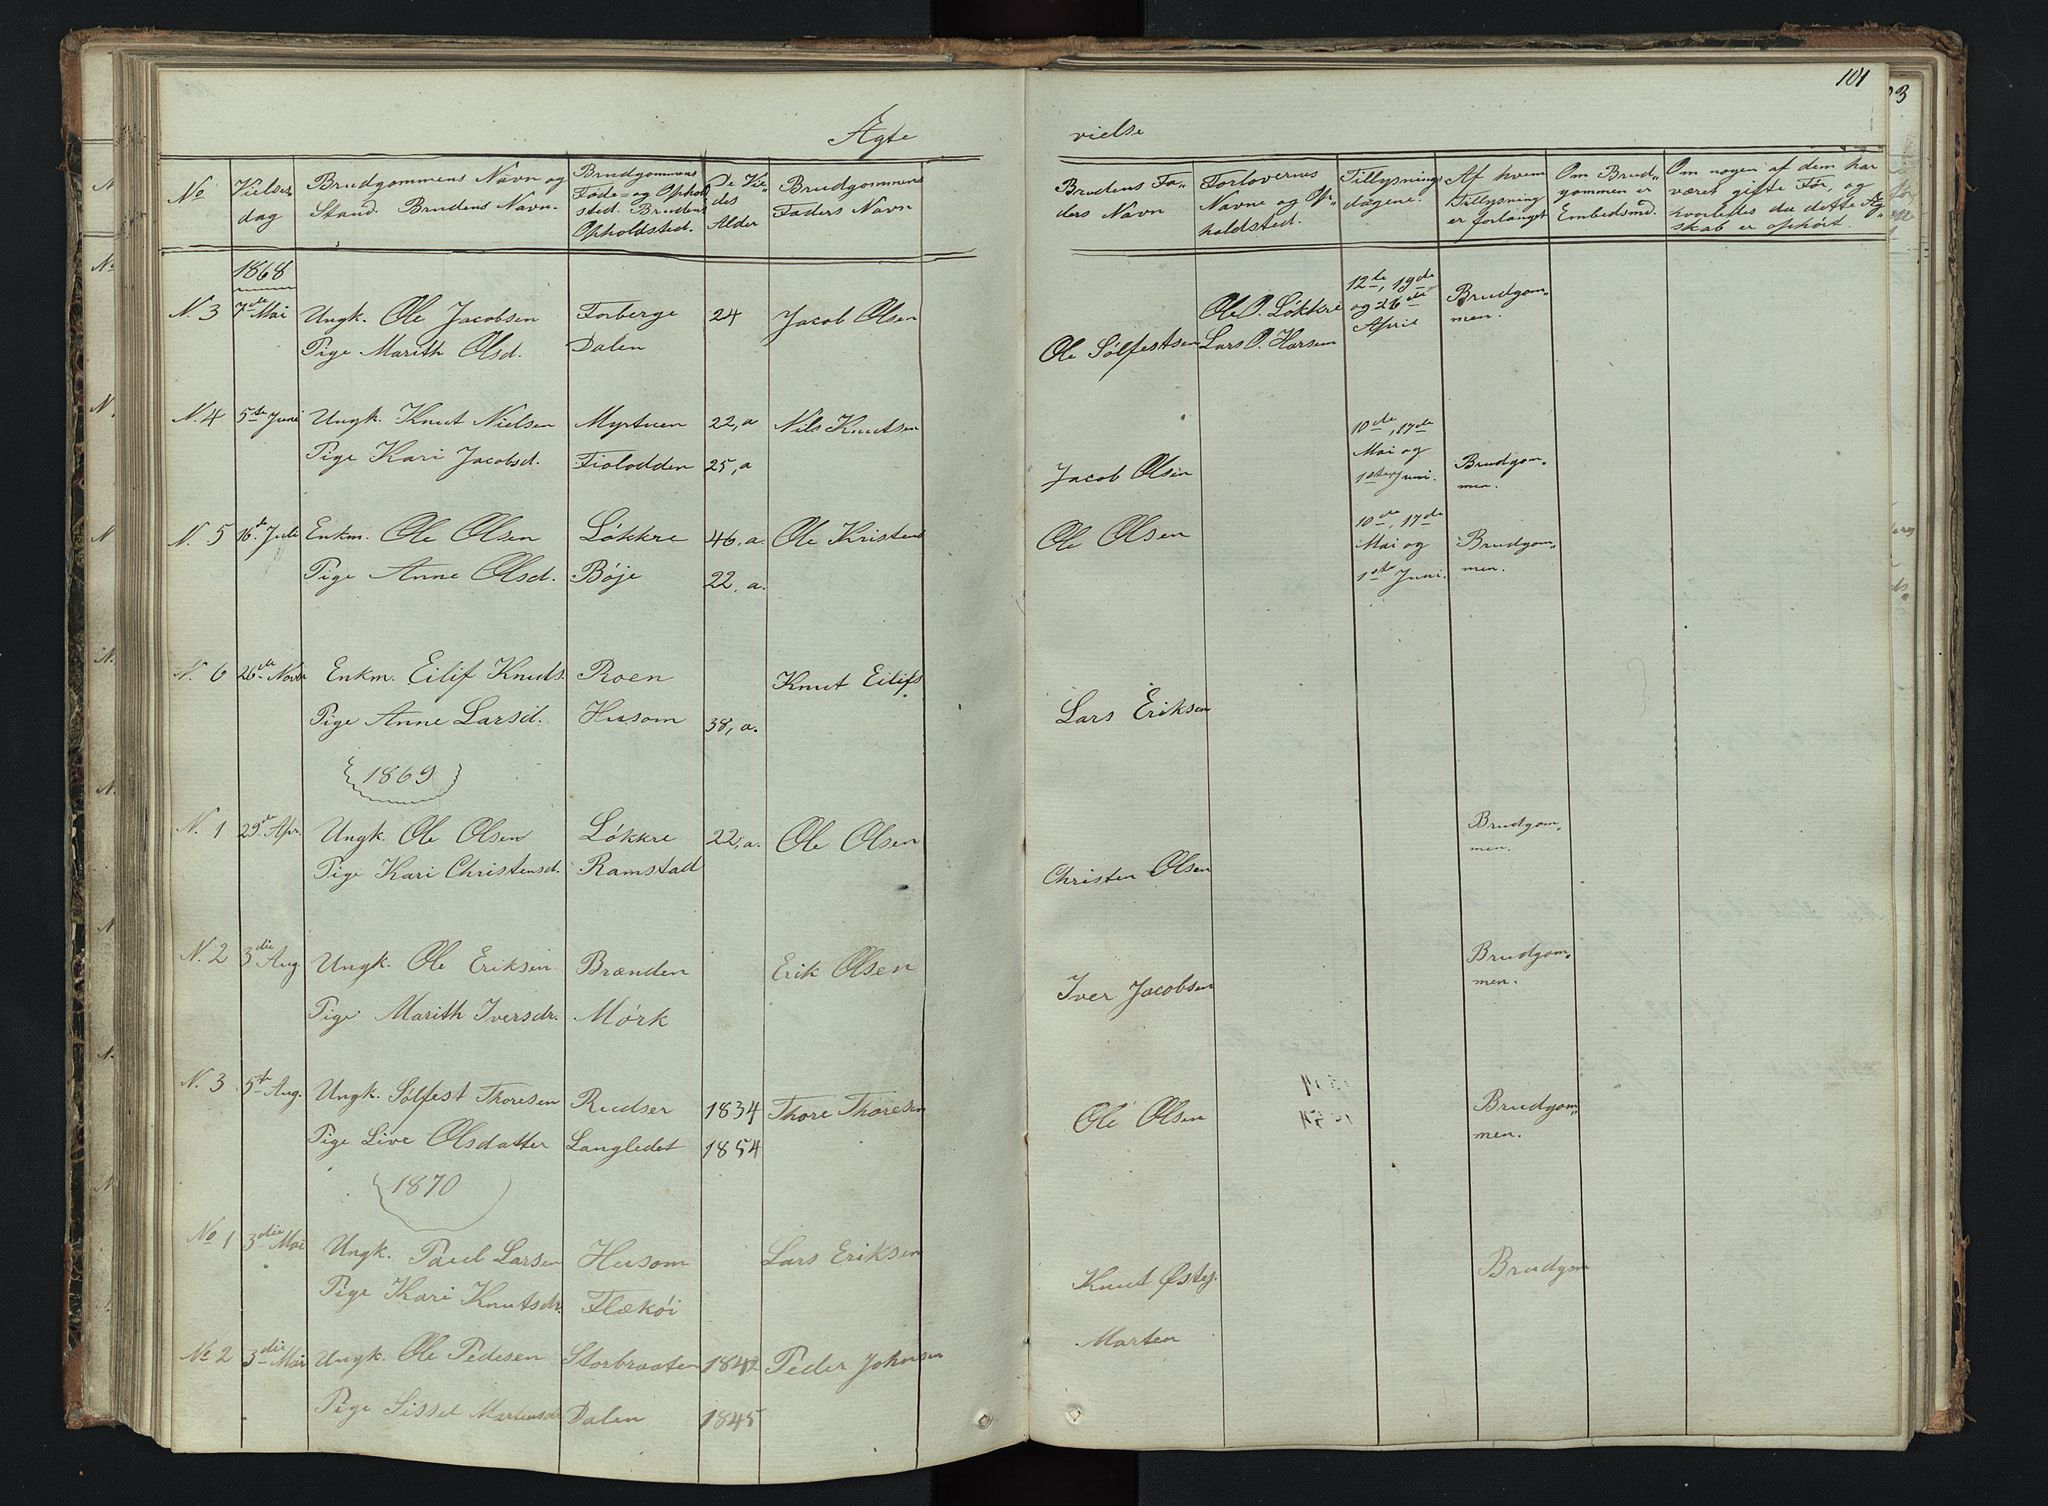 101
Ægte vielse
No
Vielses dag
Brudgommens Navn og Stand. Brudens Navn.
Brudgommens Føde= og Ophold sted. Brudens Opholdsted.
De Vie„ des Alder
Brudgommens Faders Navn
Brudens Fa„ ders Navn
Forlovernes Navne og Op„ holdsted.
Tillysnings dagene.
Af hvem Tillysning er forlanget
Om Brud„ gommen er Embedsmd.
Om nogen af dem har været gifte Før, og hvorledes da dette Æg„ skab er ophört.
1868
N. 3 7de Mai Ungk. Ole Jacobsen Forberge 24 Jacob Olsen
Pige Marith Olsd. Dalen
Ole Sölfestsen
Ole O. Løkkre
Lars O. Harsem
12te, 19de
og 26de
April
Brudgom„
men.
N. 4 5te Juni Ungk. Knut Nielsen Myrtuen 22, a Nils Knutsen
Pige Kari Jacobsd. Fiolodden 25, a
Jacob Olsen
10de, 17de
Mai og
1ste Juni.
Brudgom„
men.
N. 5 16de Juli Enkm. Ole Olsen Løkkre 46, a. Ole Kristens
Pige Anne Olsd. Bøje 22, a.
Ole Olsen
10de, 17de
Mai og
1ste Juni.
Brudgom„
men.
N. 6 26de Novbr Enkm. Eilif Knuds. Roen Knut Eilifs
Pige Anne Larsd. Husom 38, a.
Lars Eriksen
1869
N. 1 29de Apr. Ungk. Ole Olsen Løkkre 22, a. Ole Olsen
Pige Kari Christensd. Ramstad
Christen Olsen
Brudgom„
men.
N. 2 3die Aug Ungk. Ole Eriksen Brænden Erik Olsen
Pige Marith Iversdr. Mørk
Iver Jacobsen
Brudgom„
men.
N. 3 5te Aug. Ungk. Sølfest Thoresen Rudser 1834 Thore Thoresen
Pige Live Olsdatter Langledet 1854
Ole Olsen
Brudgom„
men.
1870
No 1 3die Mai Ungk. Paul Larsen Husom Lars Eriksen
Pige Kari Knutsdr. Flækøi
Knut Østg.
Brudgom
No 2 3die Mai Ungk. Ole Pedesen Storbraaten 1842 Peder Johnsen
Pige Sissel Martensdr Dalen 1845
Marten